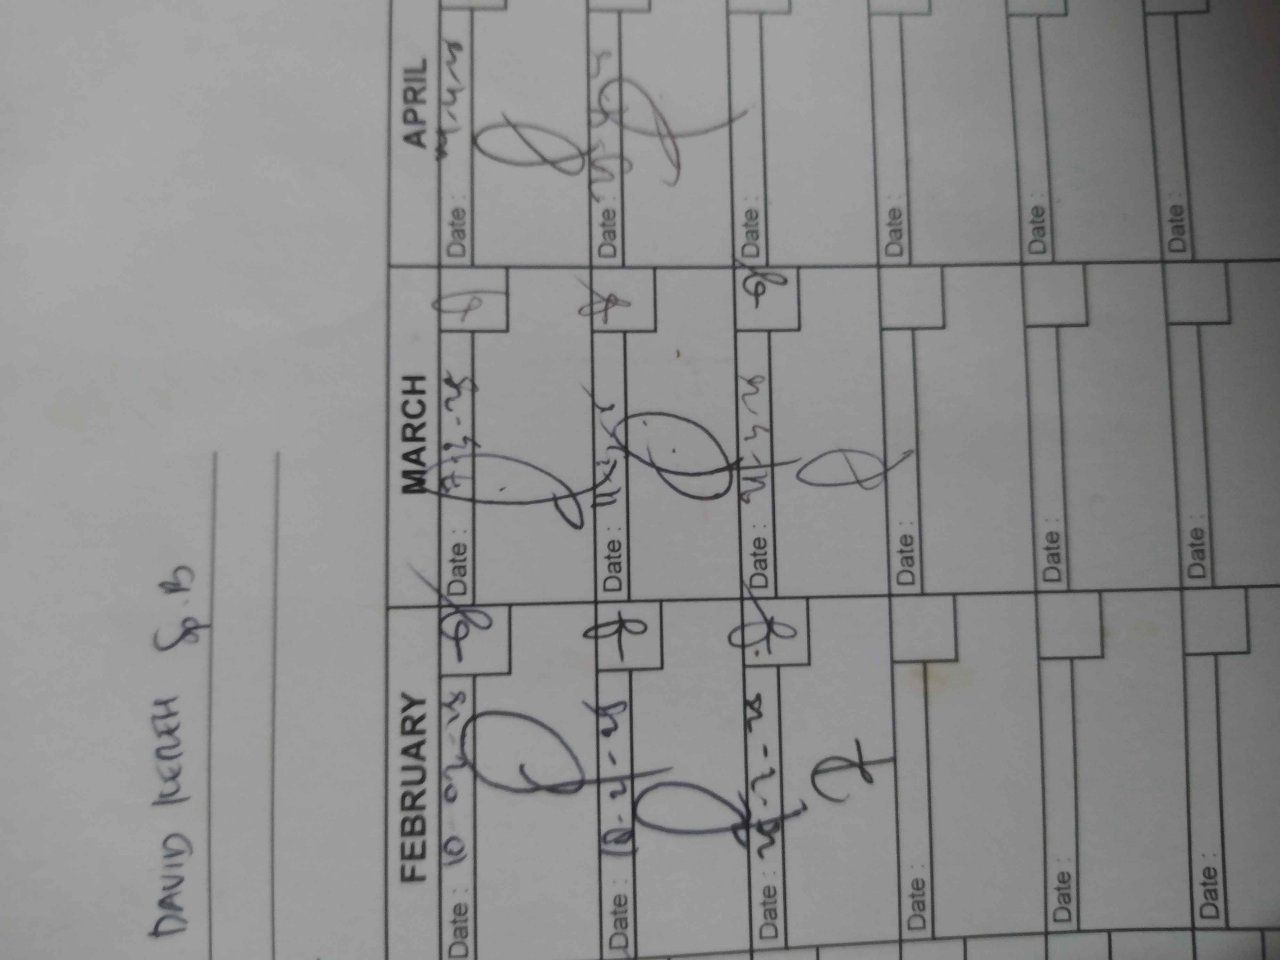 DAVID KEREH Sp.B
FEBRUARY MARCH APRIL
Date : 10 02-25 Date : 7-3-25 Date :
Date : 18-2-25 Date : 11-3-25 Date :
Date : 25-2-25 Date : Date :
Date : Date : Date :
Date : Date : Date :
Date : Date : Date :